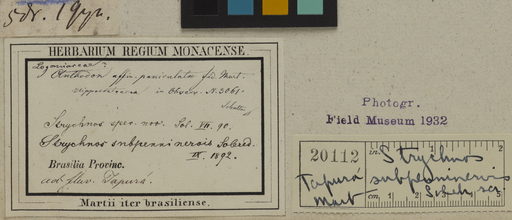 HERBARIUM REGIUM MONACENSE.
Loganiaceae?
Anthodon affin. paniculatum fid. Mart.
Hippocrateacea in Observ. N. 3061.
Strychnos spec. nov. Sol. VII. 90.
Strychnos subpenninervis Solered.
IX. 1892.
Brasilia Provinc.
ad fluv. Tapurá.
Martii iter brasiliense.
Photogr.
Field Museum 1932
20112
Strychnos
Tapurá subpenninervis
Mart
in.
cm.
1 2 3 4 5